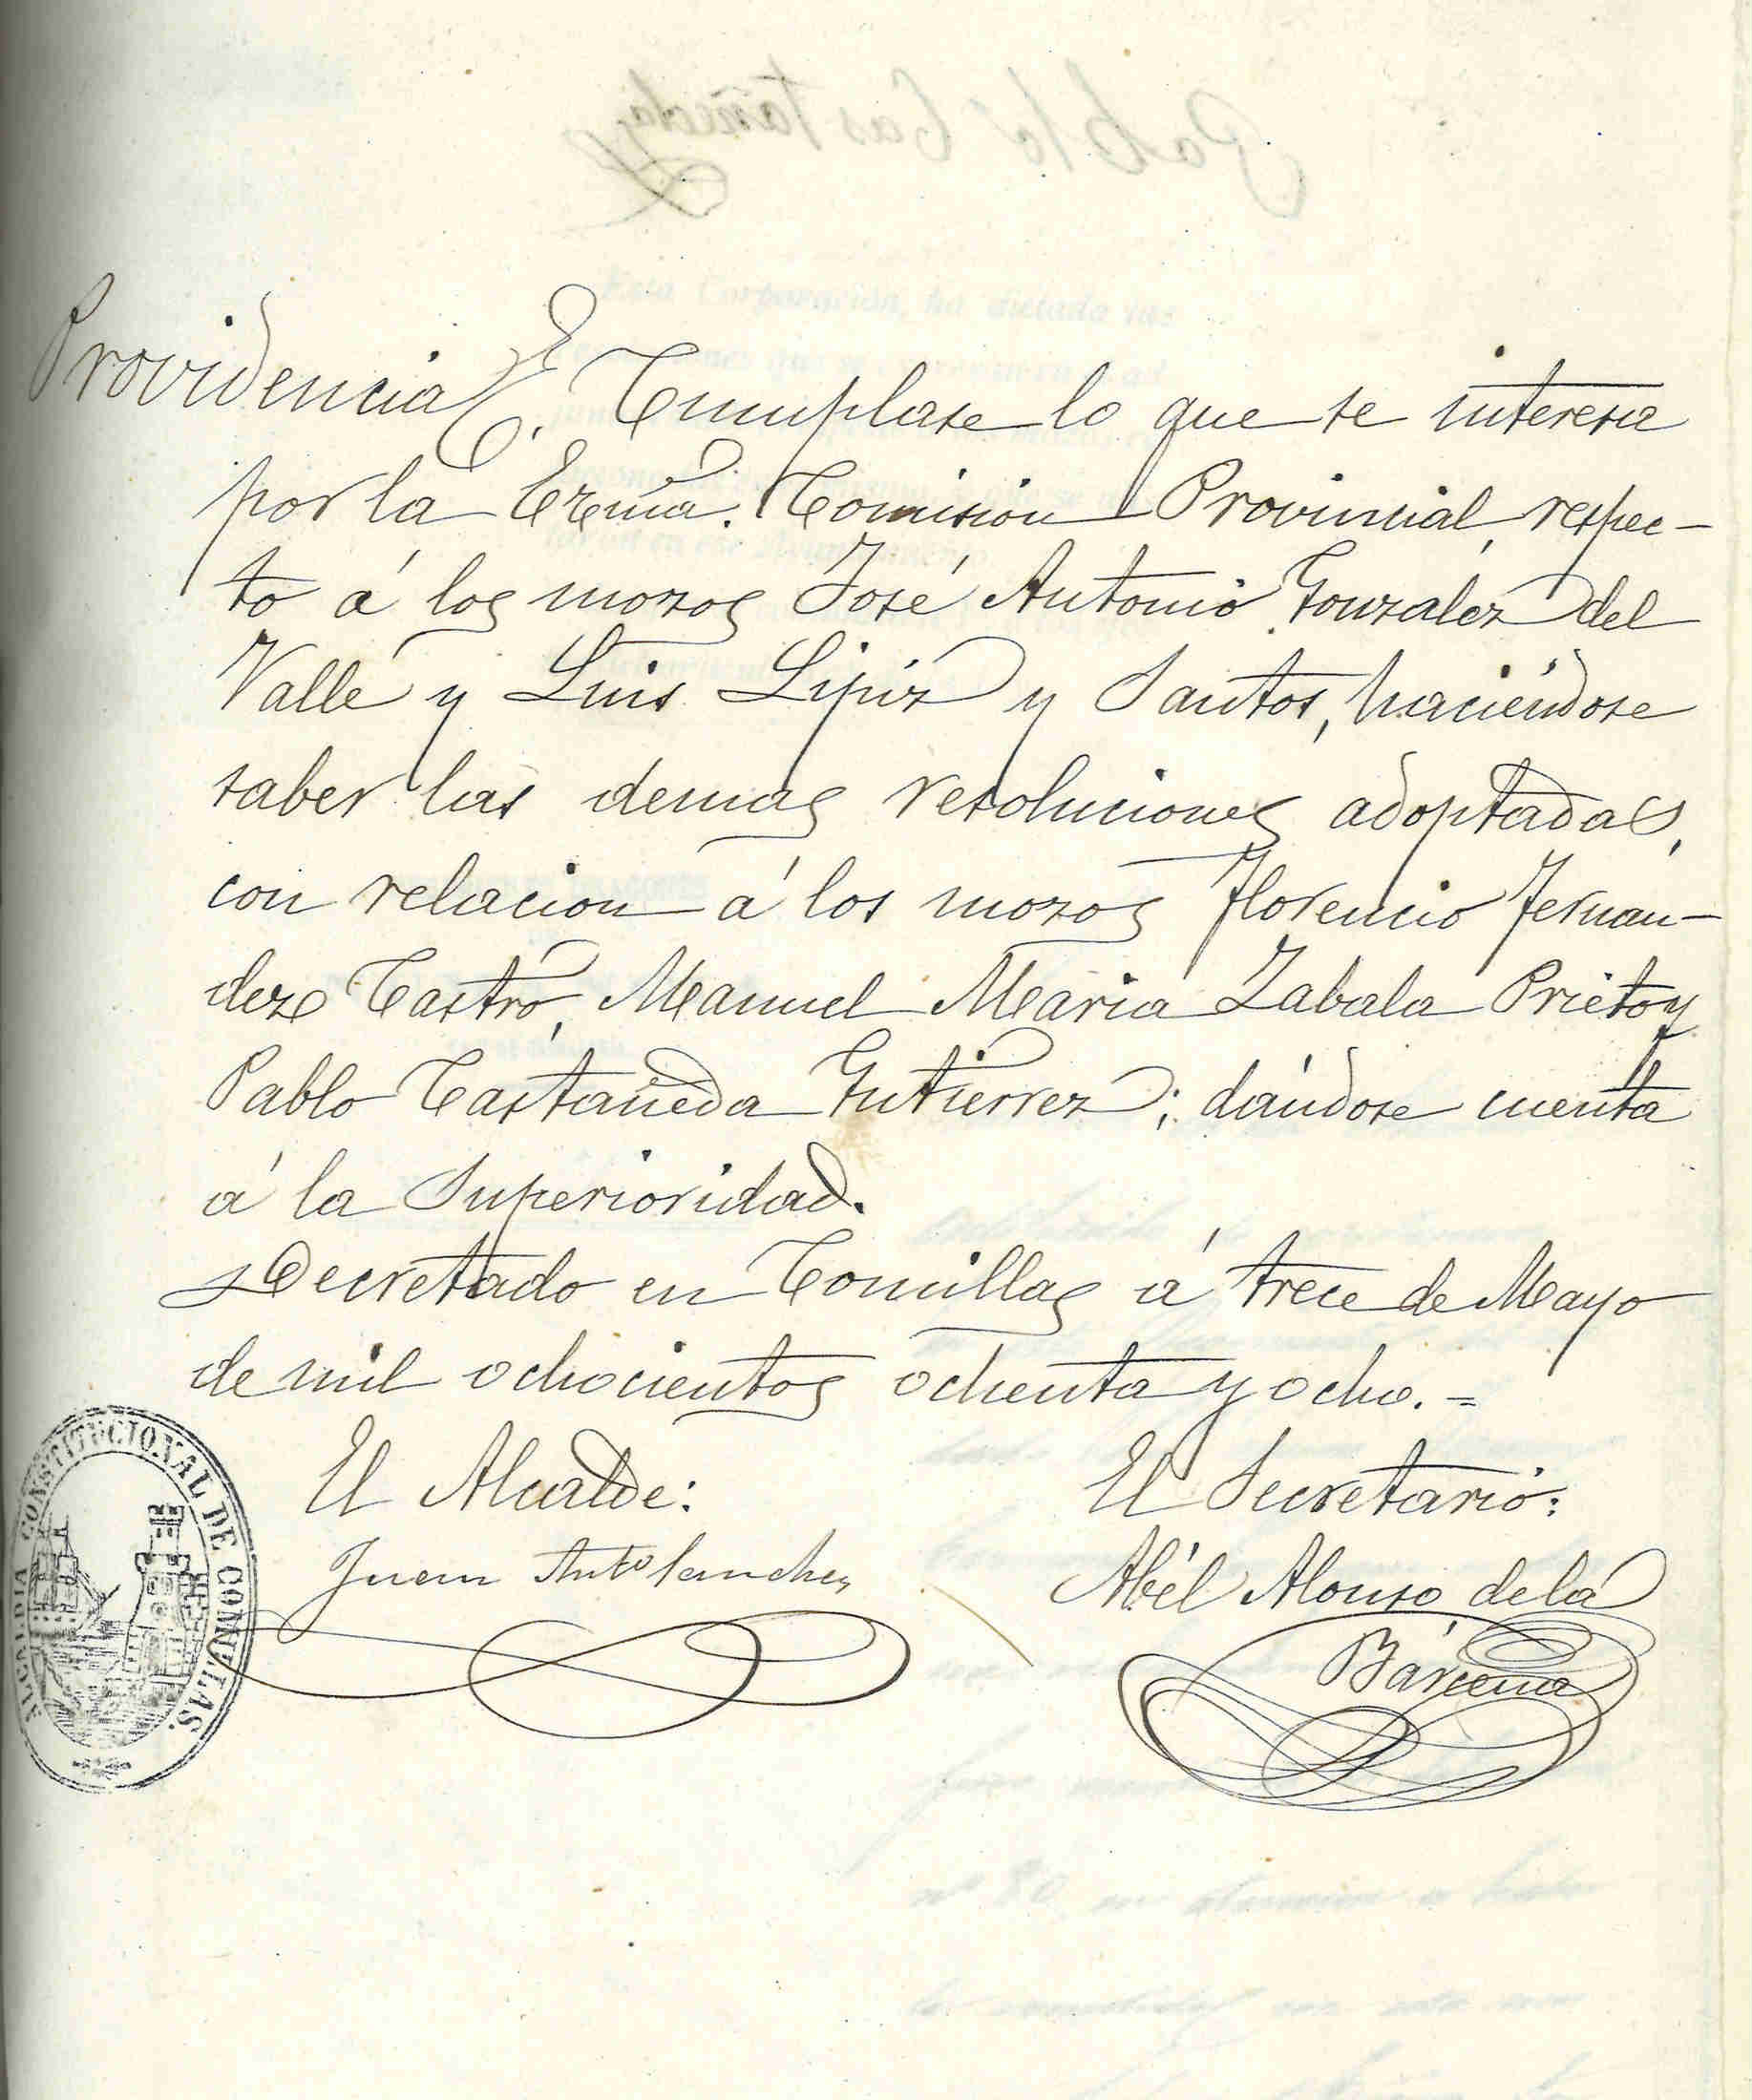 Providencia. Cumplase lo que se interesa
por la Excma. Comision Provincial, respec-
to á los mozos José Antonio Gonzalez del
Valle y Luis Lipiz y Santos, haciéndose
saber las demas resoluciones adoptadas,
con relacion á los mozos Florencio Fernan-
dez Castro, Manuel Maria Zabala Prieto y
Pablo Castañeda Gutierrez; dándose cuenta
á la Superioridad.
Decretado en Comillas á trece de Mayo
de mil ochocientos ochenta y ocho.=
El Alcalde:
El Secretario:
Juan Antº Sanchez
Abél Alonso de la
Bárcena
ALCALDIA CONSTITUCIONAL DE COMILLAS.
Pablo Castañeda